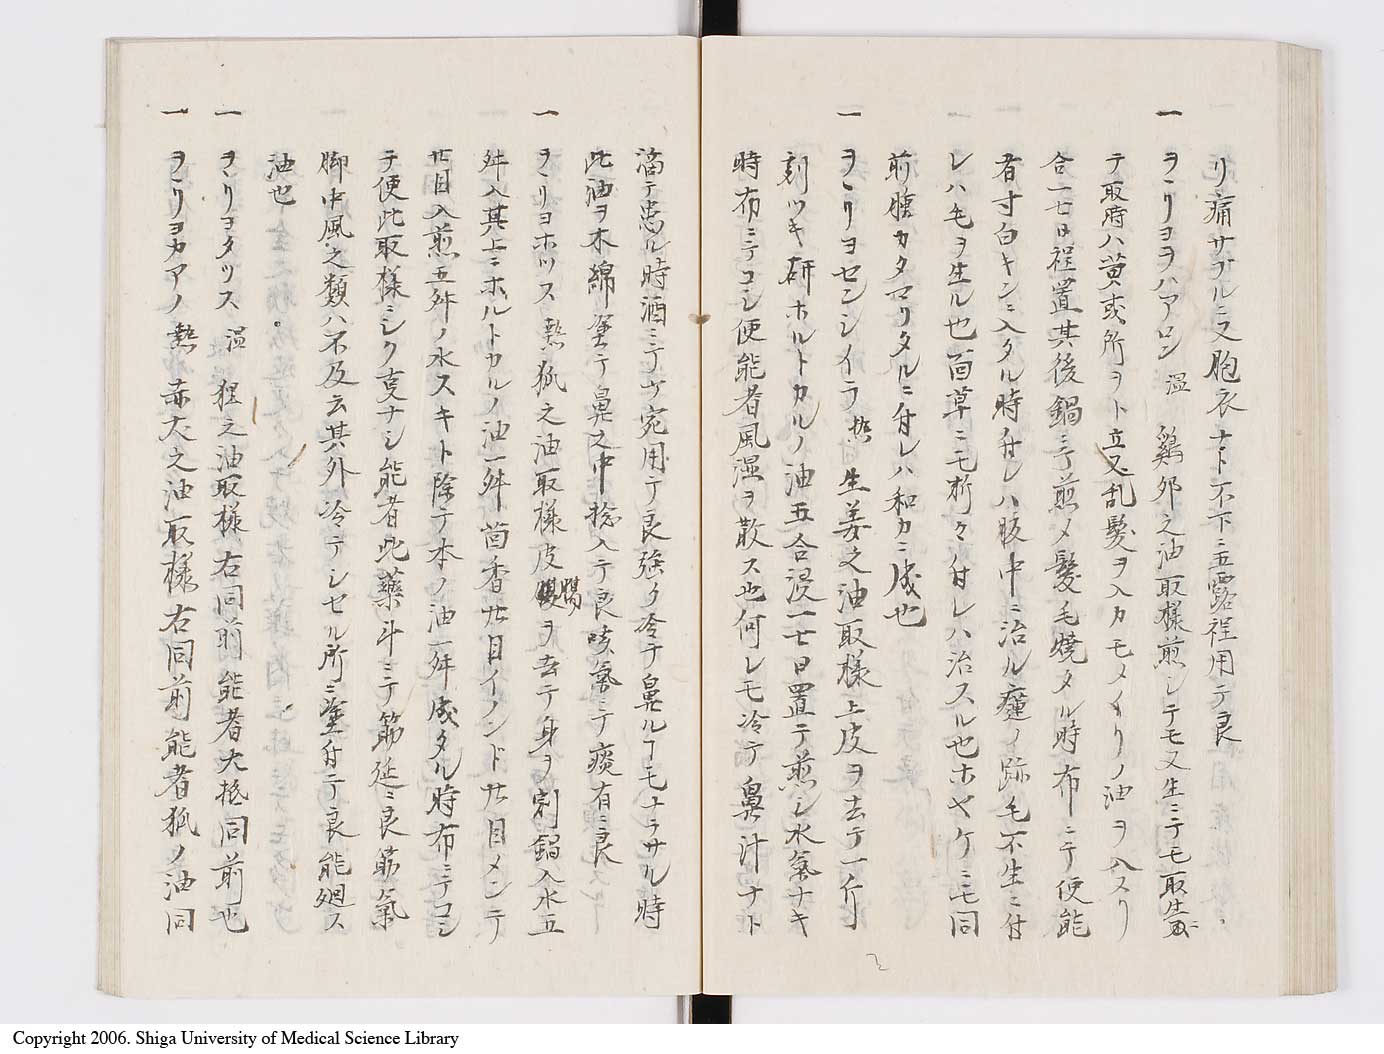 リ痛サヲルニ又胞衣ナト不下ニ五露程用テ良
一 ヲヽリヨヲハアロン 温 鶏卵之油取様煎シテモ又生ニテモ取生
テ取時ハ黄或所ヲト立又乱髪ヲ入カモメイリノ油ヲ入スリ
合一七日程置其後鍋ニテ煎メ髪毛焼タル時布ニテ便能
者寸白キンニ入タル時付レハ腹中ニ治ル瘇ノ跡毛不生ニ付
レハ毛ヲ生ル也面草ニモ断々付レハ治スル也ホヤケニモ同
前腫カタマリタルニ付レハ和カニ成也
一 ヲヽリヨセンシイテ 熱 生姜之油取様上皮ヲ去テ一斤
刻ツキ研ホルトカルノ油五合浸一七日置テ煎シ水氣ナキ
時布ニテコシ便能者風湿ヲ散ス也何レモ冷テ鼻汁ナト
滔テ患ル時酒ニテツ宛用テ良強ク冷テ鼻ルヿモナラサル時
此油ヲ木綿塗テ鼻之中捻入テ良咳氣ニテ痰有ニ良
一 ヲヽリヨホツス 熱 狐之油取様皮腸ヲ去テ身ヲ割鍋入水五
舛入其上ニホルトカルノ油一舛茴香廿目イノンド廿目メンテ
廿目入煎五舛ノ水スキト除テ本ノ油一舛成タル時布ニテコシ
テ便此取様ミシク亥ナシ能者此藥斗ニテ筋延ニ良筋氣
脚中風之類ハ不及云其外冷テシセル所ニ塗付テ良能廻ス
油也
一 ヲヽリヨタツス 温 狸之油取様右同前能者大抵同前也
一 ヲヽリヨカアノ 熱 赤犬之油取様右同前能者狐ノ油同
Copyright 2006. Shiga University of Medical Science Library